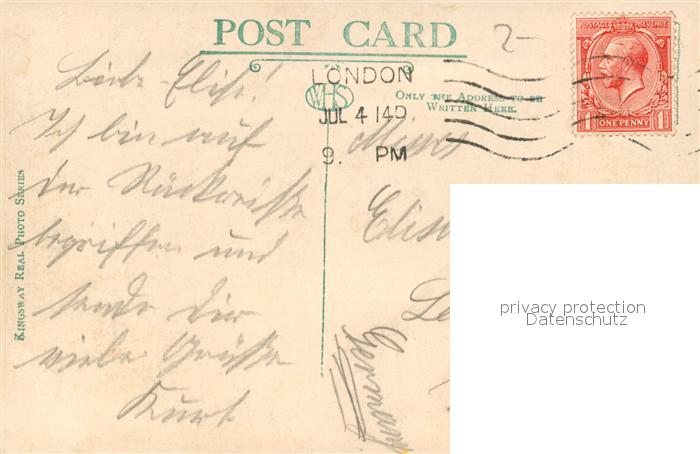 POST CARD
2-
POSTAGE REVENUE
ONE PENNY
1 1
LONDON
JUL 4 14
9. PM
WHS
ONLY THE ADDRESS TO BE
WRITTEN HERE.
KINGSWAY REAL PHOTO SERIES
Liebe Elise!
Ich bin auf
der Rückreise
begriffen und
sende Dir
viele Grüße
Kurt
Miss
Elis
Le
Germany
privacy protection
Datenschutz